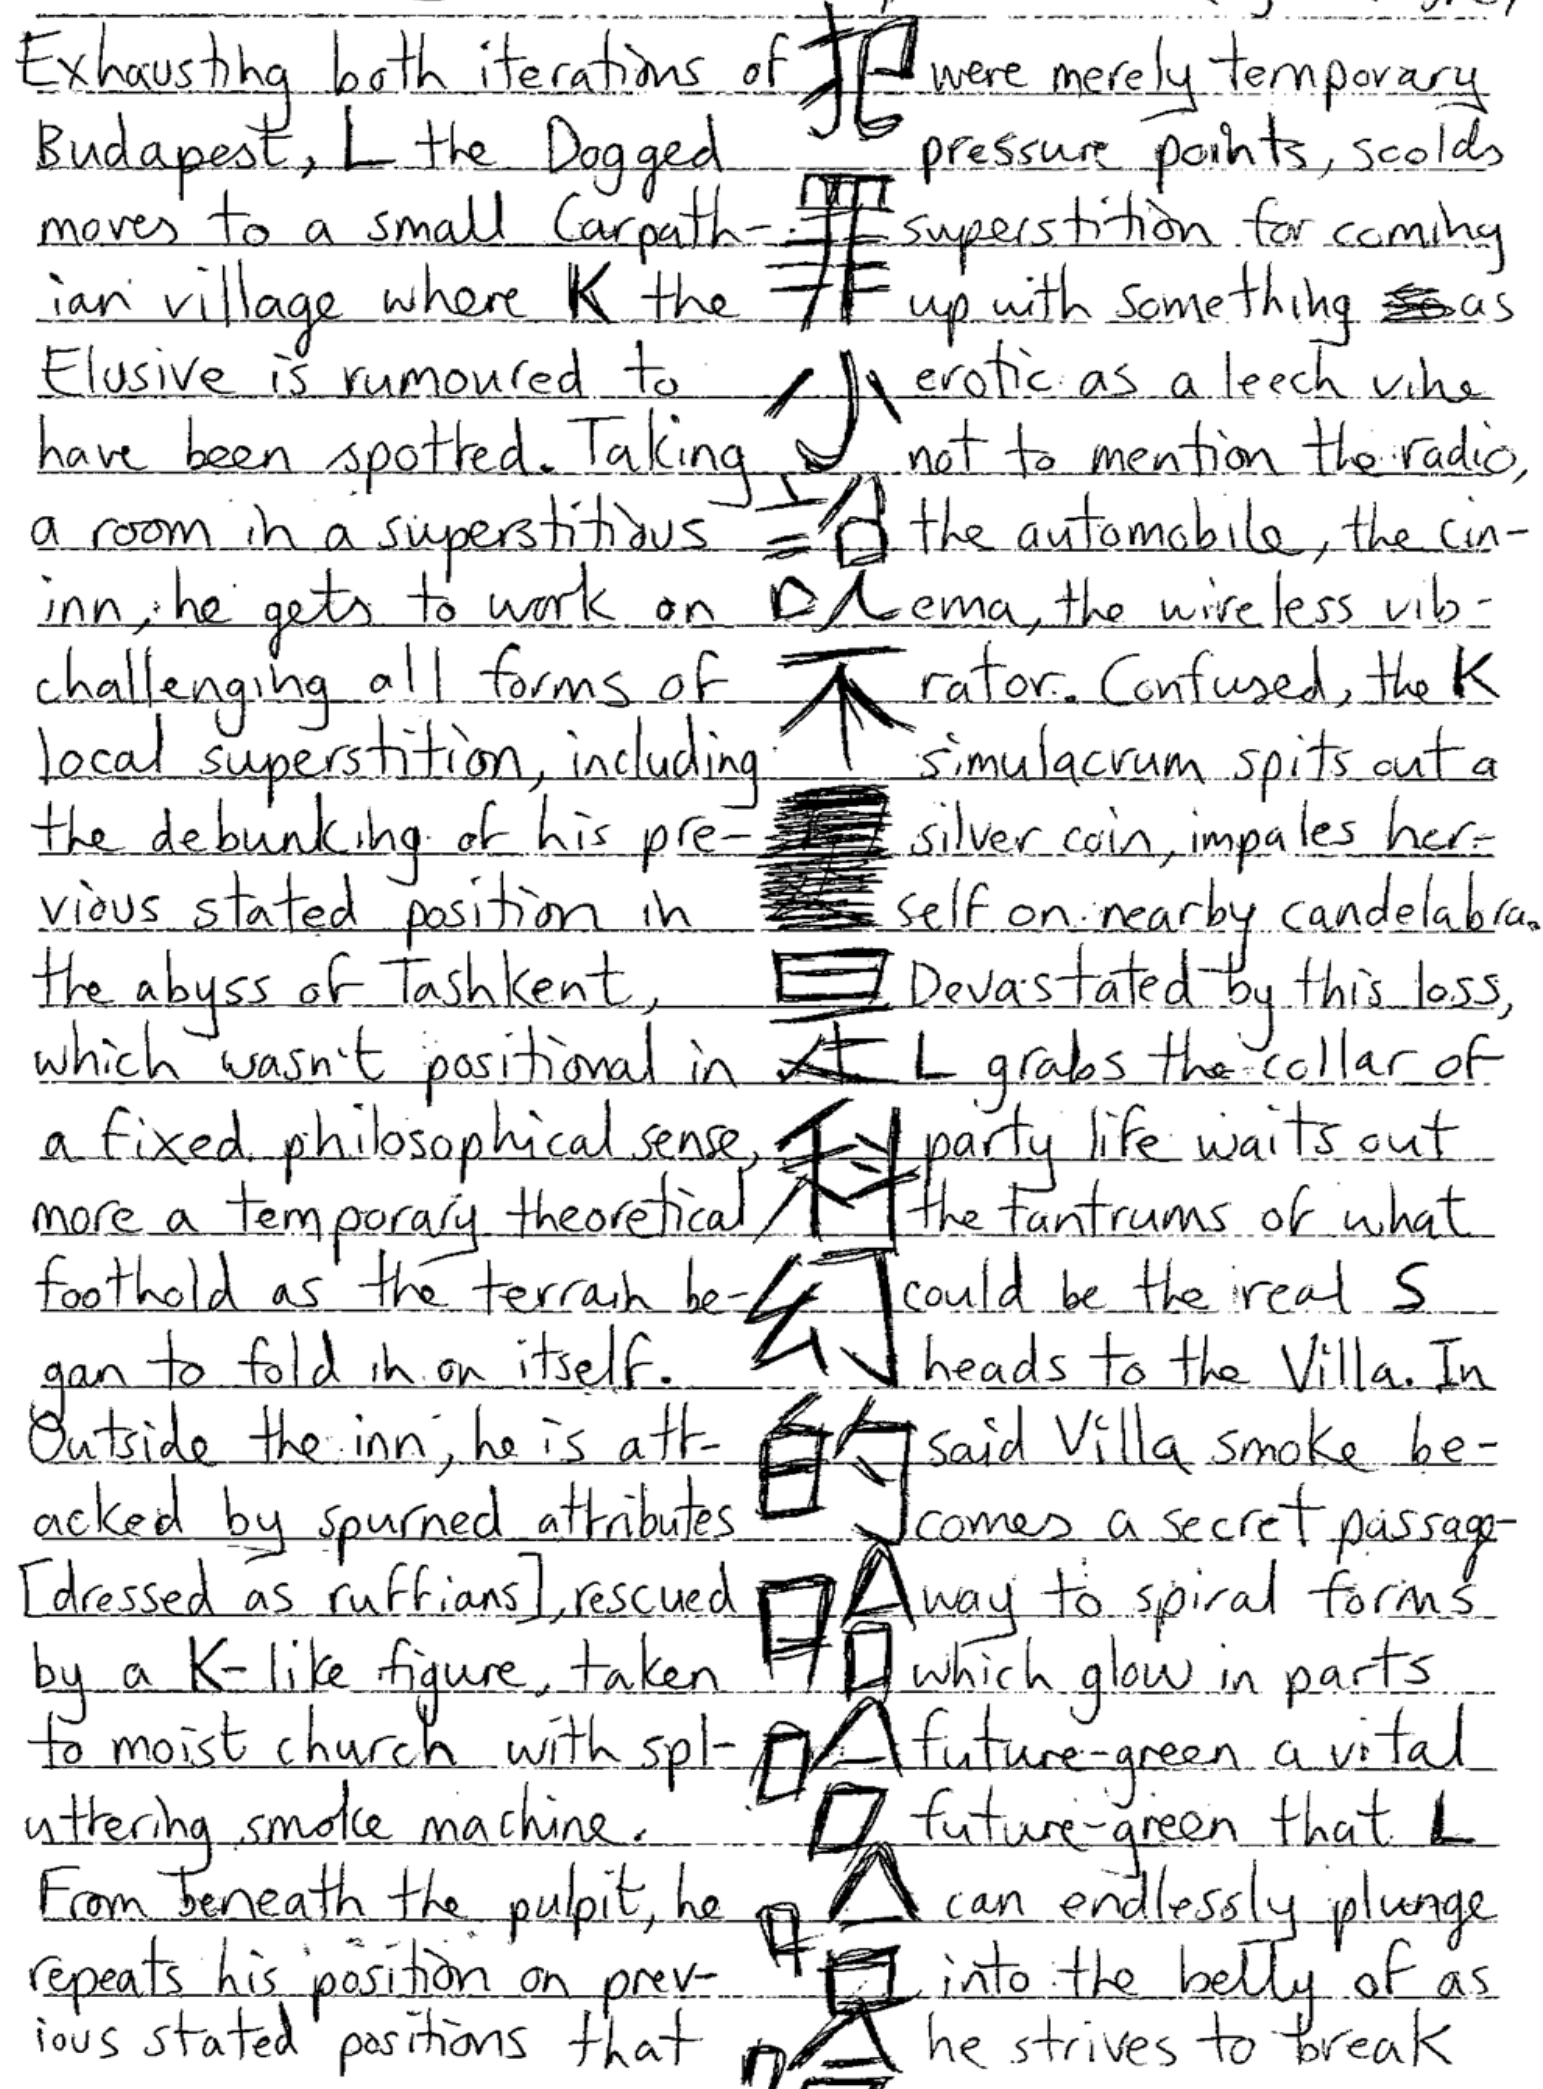 Exhausting both iterations of
Budapest, L the Dogged
moves to a small Carpath-
ian village where K the
Elusive is rumoured to
have been spotted. Taking
a room in a superstitious
inn, he gets to work on
challenging all forms of
local superstition, including
the debunking of his pre-
vious stated position in
the abyss of Tashkent,
which wasn't positional in
a fixed philosophical sense,
more a temporary theoretical
foothold as the terrain be-
gan to fold in on itself.
Outside the inn, he is att-
acked by spurned attributes
[dressed as ruffians], rescued
by a K-like figure, taken
to moist church with spl-
uttering smoke machine.
From beneath the pulpit, he
repeats his position on prev-
ious stated positions that
犯
罪
小
說
以
不
是
科
幻
的
哈
哈
哈
哈
were merely temporary
pressure points, scolds
superstition for coming
up with something as
erotic as a leech vine
not to mention the radio,
the automobile, the cin-
ema, the wireless vib-
rator. Confused, the K
simulacrum spits out a
silver coin, impales her-
self on nearby candelabra.
Devastated by this loss,
L grabs the collar of
party life waits out
the tantrums of what
could be the real S
heads to the Villa. In
said Villa smoke be-
comes a secret passage-
way to spiral forms
which glow in parts
future-green a vital
future-green that L
can endlessly plunge
into the belly of as
he strives to break